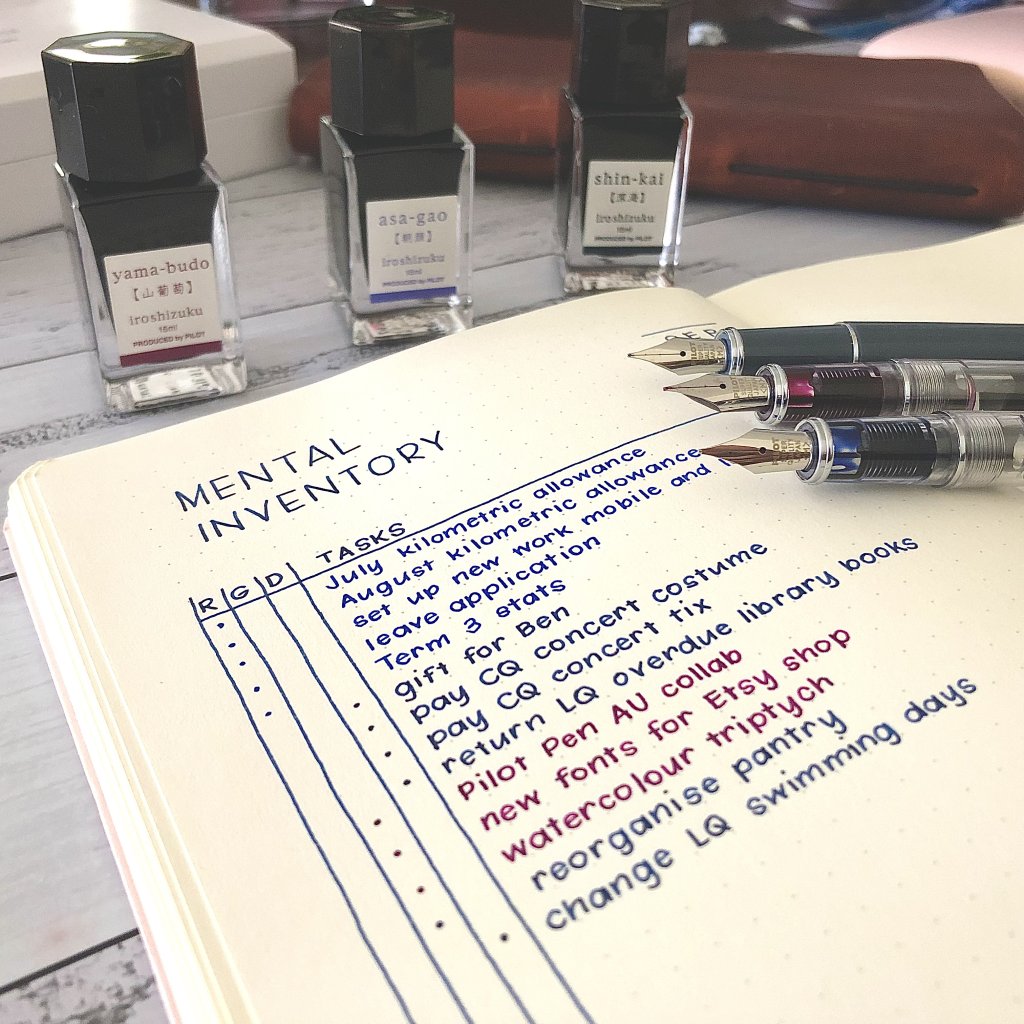 yama-budo
【山葡萄】
iroshizuku
15ml
PRODUCED by PILOT
asa-gao
【朝顔】
iroshizuku
15ml
PRODUCED by PILOT
shin-kai
【深海】
iroshizuku
15ml
PRODUCED by PILOT
MENTAL
INVENTORY
R G D TASKS
July kilometric allowance
August kilometric allowance
set up new work mobile and
leave application
Term 3 stats
gift for Ben
pay CQ concert costume
pay CQ concert tix
return LQ overdue library books
Pilot Pen AU collab
new fonts for Etsy shop
watercolour triptych
reorganise pantry
change LQ swimming days